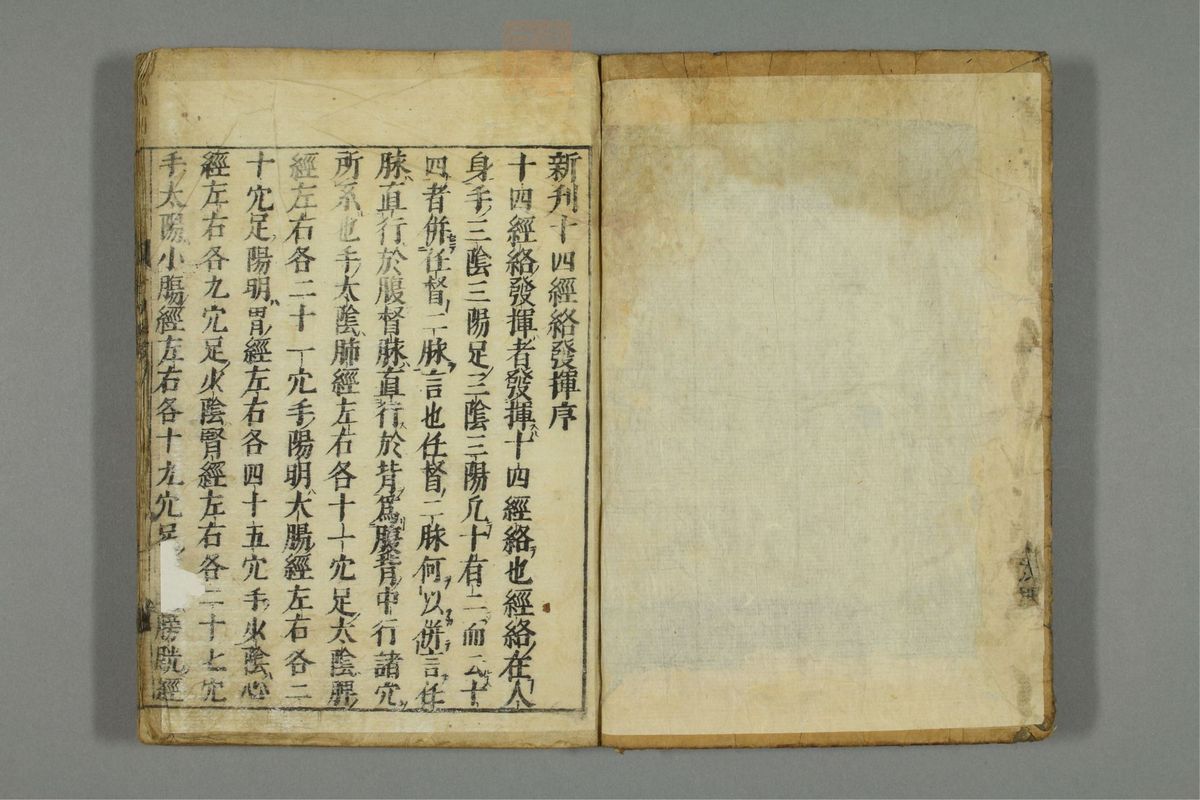 新刋十四經絡發揮序
十四經絡發揮者發揮十四經絡也經絡在人
身手三陰三陽足三陰三陽凡十有二而云十
四者併任督二脉言也任督二脉何以併言任
脉直行於腹督脉直行於背爲腹背中行諸穴
所系也手太陰肺經左右各十一穴足太陰脾
經左右各二十一穴手陽明大腸經左右各二
十穴足陽明胃經左右各四十五穴手火陰心
經左右各九穴足火陰腎經左右各二十七穴
手太陽小膓經左右各十九穴足膀胱經